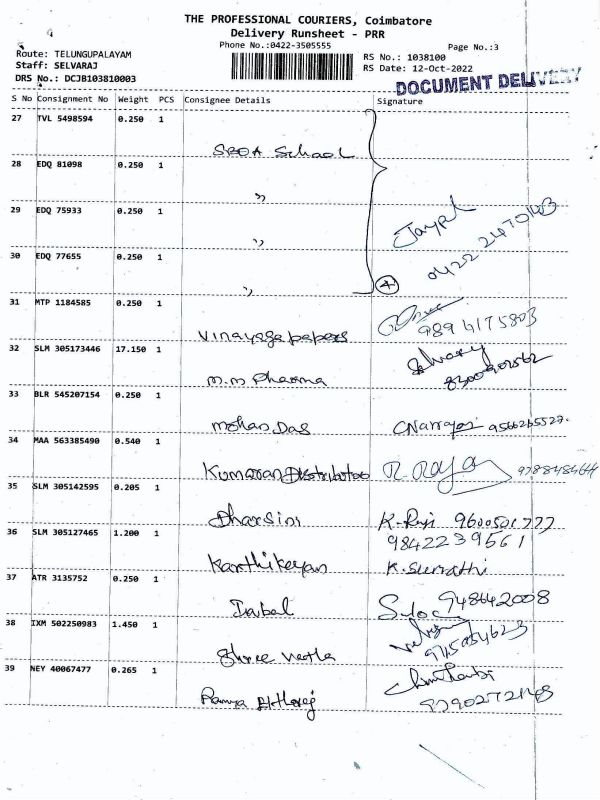 THE PROFESSIONAL COURIERS, Coimbatore
Delivery Runsheet - PRR
Phone No.:0422-3505555
Page No.:3
Route: TELUNGUPALAYAM
Staff: SELVARAJ
DRS No.: DCJB103810003
RS No.: 1038100
RS Date: 12-Oct-2022
DOCUMENT DELIVERY
S No Consignment No Weight PCS Consignee Details Signature
27 TVL 5498594 0.250 1
SBOA School
28 EDQ 81098 0.250 1
"
29 EDQ 75933 0.250 1
"
0422 2470143
30 EDQ 77655 0.250 1
" 4
31 MTP 1184585 0.250 1
Vinayaga papers 9894175803
32 SLM 305173446 17.150 1
M.M Pharma
33 BLR 545207154 0.250 1
Mohan Das 9566265527
34 MAA 563385490 0.540 1
Kumaran Distributors R. Raja
35 SLM 305142595 0.205 1
Dharsini K. Raji 9600501777
36 SLM 305127465 1.200 1
9842239561
Karthikeyan K. Sumathi
37 ATR 3135752 0.250 1
948642008
38 IXM 502250983 1.450 1
Shree
39 NEY 40067477 0.265 1
Ramya